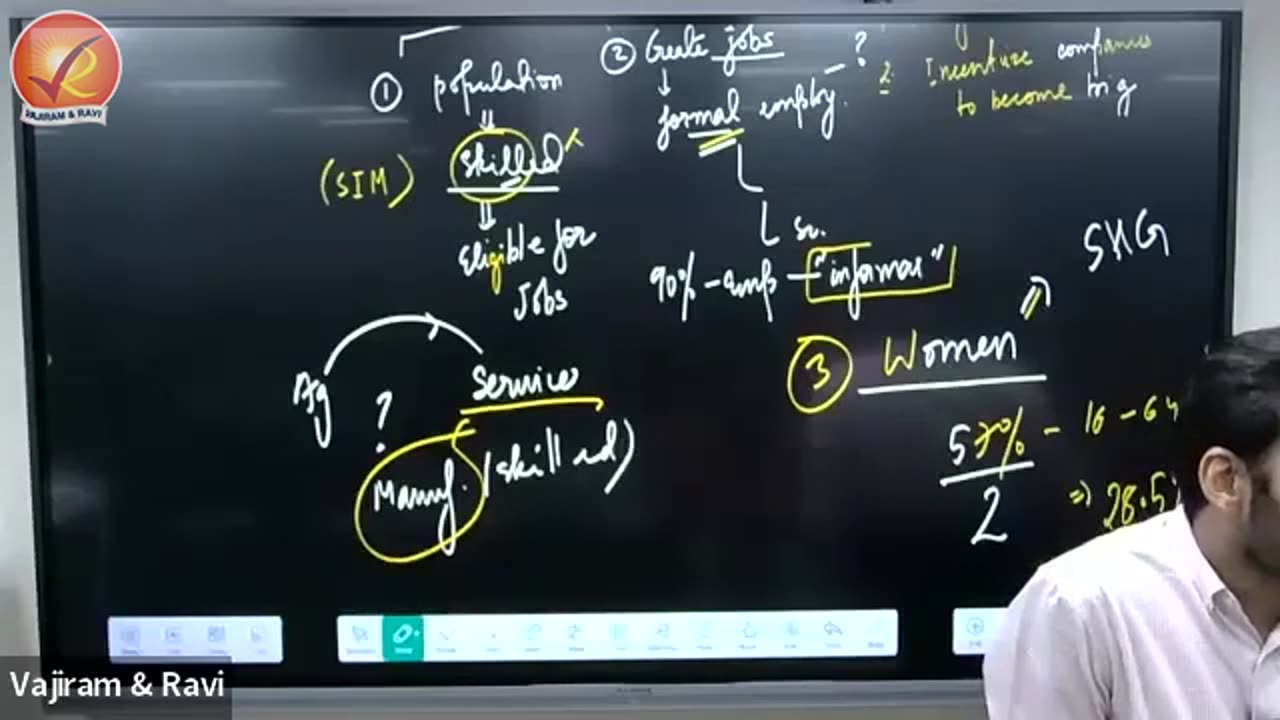 VAJIRAM & RAVI
① population
Skilled
(SIM)
Eligible for
Jobs
Ag
Services
?
Manuf. (skilled)
② Create jobs
?
formal employ.
90% - emp - "informal"
2. Incentivize companies
to become big
SHG
③ Women
57% - 16 - 64
2
⇒ 28.5%
Vajiram & Ravi